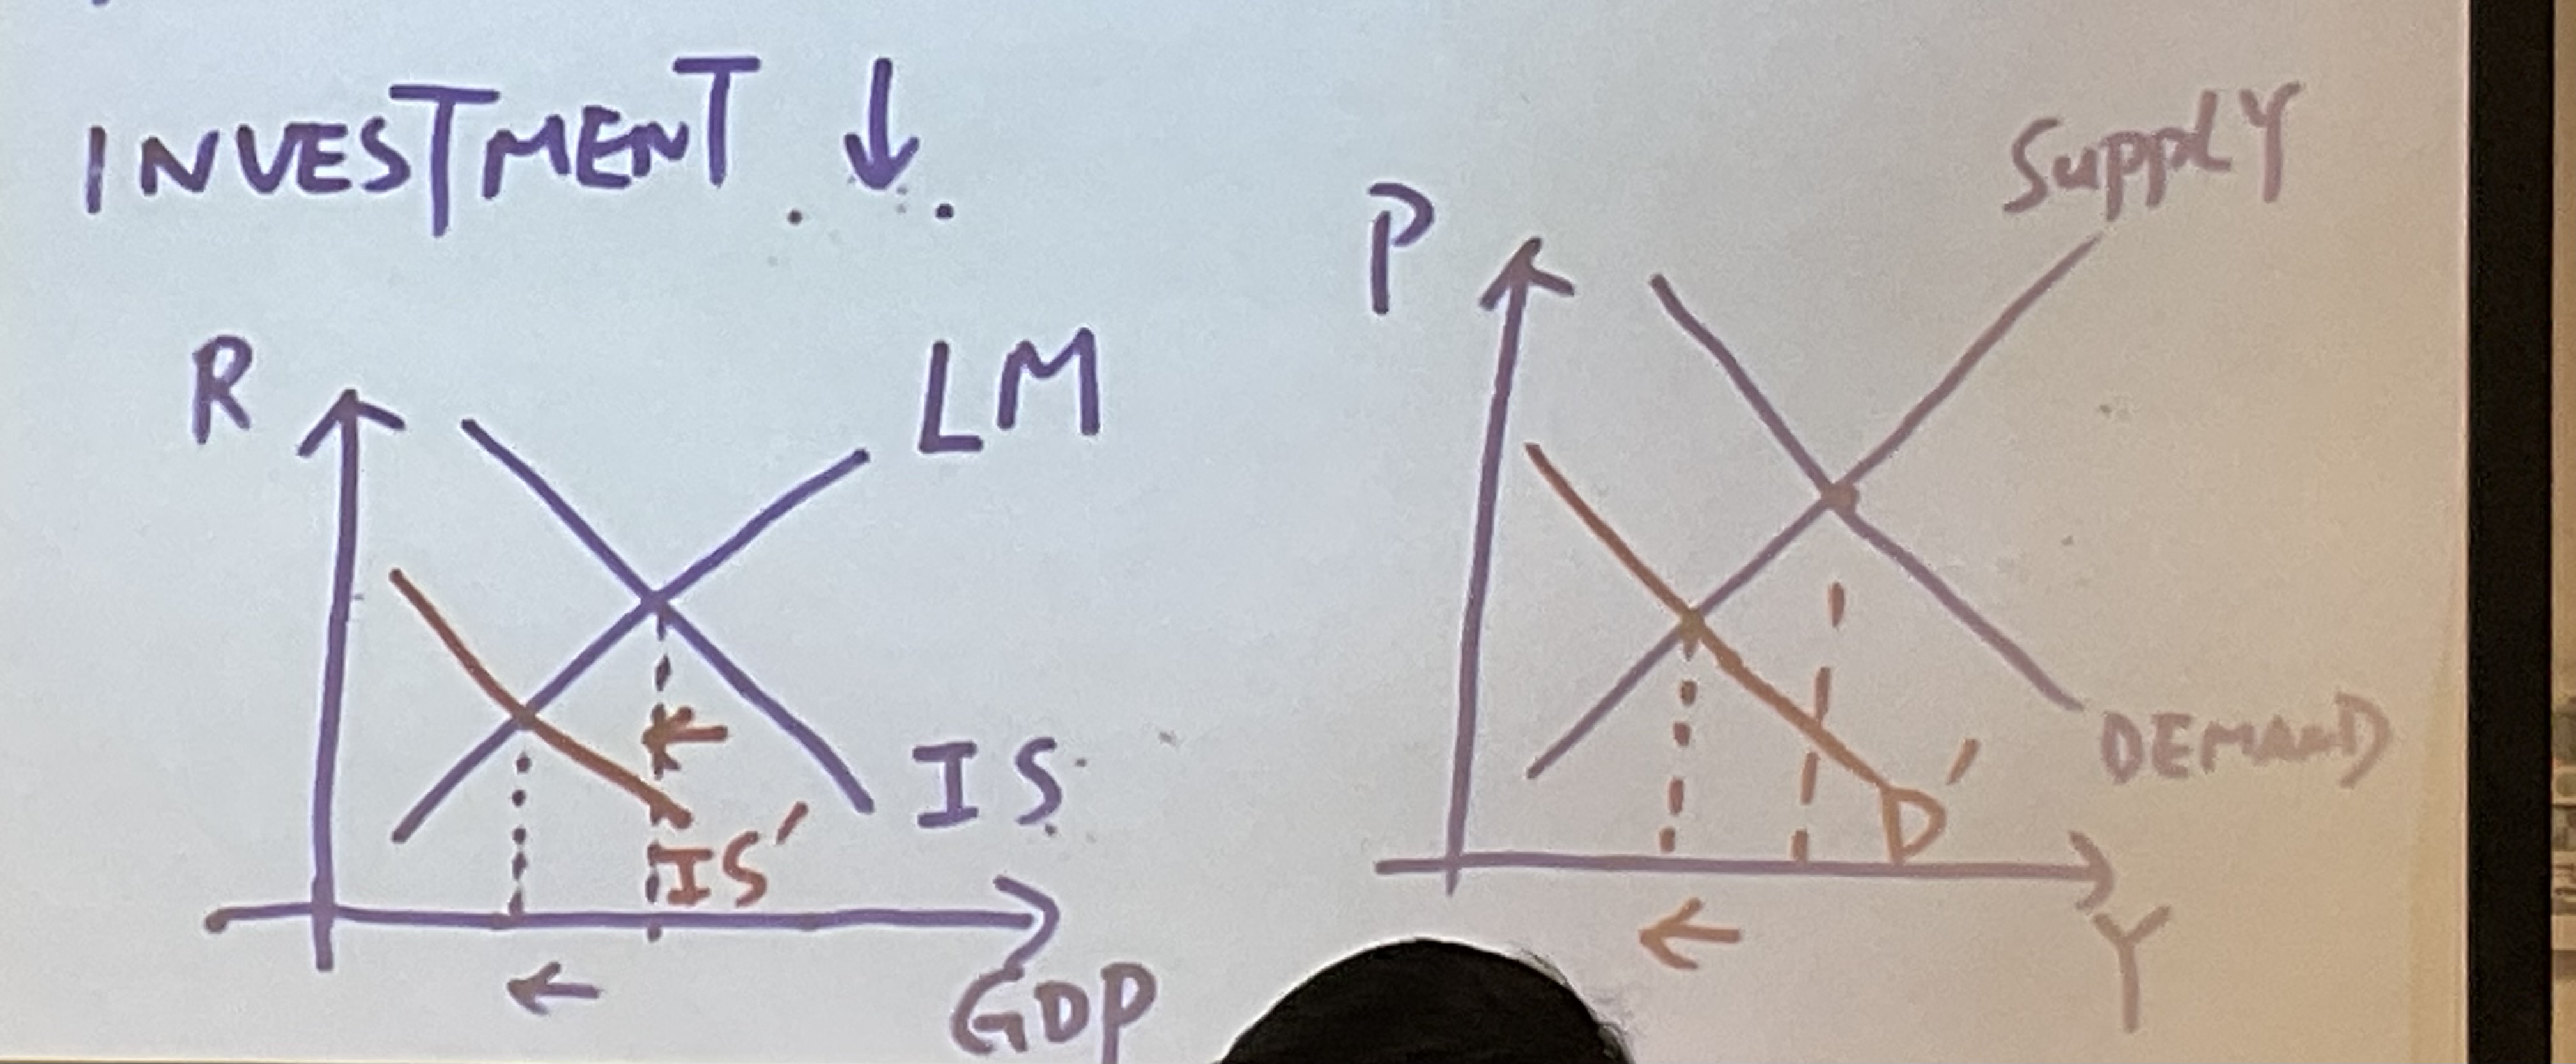 INVESTMENT ↓
R
LM
IS
IS'
GDP
P
Supply
DEMAND
D'
Y